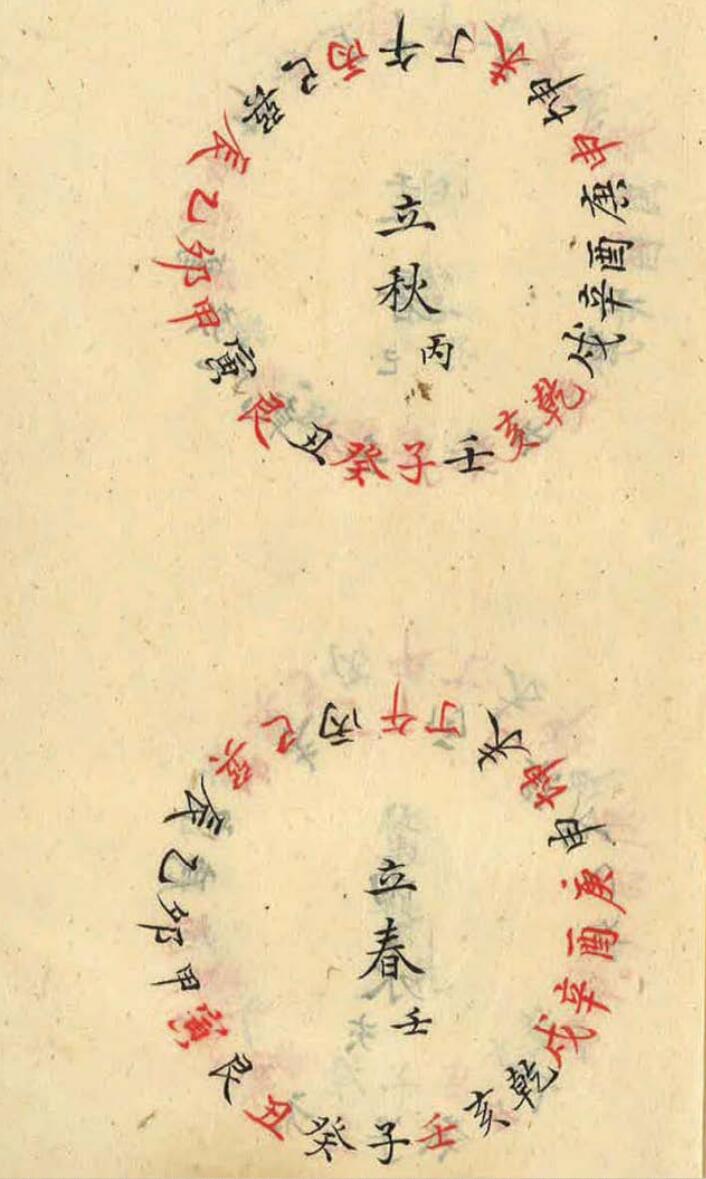 立秋
丙
子癸丑艮寅甲卯乙辰巽巳丙午丁未坤申庚酉辛戌乾亥壬
立春
壬
子癸丑艮寅甲卯乙辰巽巳丙午丁未坤申庚酉辛戌乾亥壬